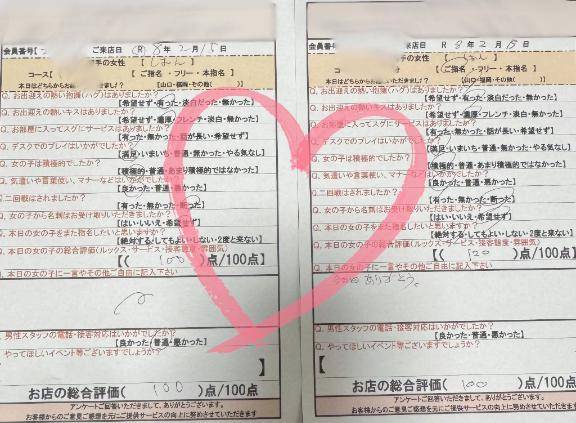 会員番号【 ご来店日 (R) 8年 2月 15日
手の女性 【 しおん 】
コース【 】【 ご指名 ・フリー・本指名】
本日はどちらからお越しですか?【山口・福岡・その他( )】
Q. お出迎えの熱い抱擁(ハグ)はありましたか?
【希望せず・有った・淡白だった・無かった】
Q. お出迎えの熱いキスはありましたか?
【希望せず・濃厚・フレンチ・淡白・無かった】
Q. お部屋に入ってスグにサービスはありましたか?
【有った・無かった・話が長い・希望せず】
Q. デスクでのプレイはいかがでしたか?
【満足・いまいち・普通・無かった・やる気なし】
Q. 女の子は積極的でしたか?
【積極的・普通・あまり積極的ではなかった】
Q. 気遣いや言葉使い、マナーなどはいかがでしたか?
【良かった・普通・悪かった】
Q. 二回戦はされましたか?
【有った・無かった・断った】
Q. 女の子から名刺はお受け取りいただきましたか?
【はい・いいえ・希望せず】
Q. 本日の女の子をまた指名したいと思いますか?
【絶対する・してもよい・しない・2度と来ない】
Q. 本日の女の子の総合評価(ルックス・サービス・接客態度・雰囲気)
【( 100 )点/100点】
Q. 本日の女の子に一言やその他ご自由に記入下さい
Q. 男性スタッフの電話・接客対応はいかがでしたか?
【良かった・普通・悪かった】
Q. やってほしいイベント等ございますでしょうか?
】
お店の総合評価( 100 )点/100点
アンケートご回答いただきまして、ありがとうございます。
お客様からのご意見ご感想を元にご提供サービスの向上に努めさせていただきます
会員番号【 ご来店日 R 8年 2月 15日
手の女性 【 しおん 】
【 ご指名・フリー・本指名】
本日はどちらからお越しですか?【山口・福岡・その他( )】
Q. お出迎えの熱い抱擁(ハグ)はありましたか?
【希望せず・有った・淡白だった・無かった】
Q. お出迎えの熱いキスはありましたか?
【希望せず・濃厚・フレンチ・淡白・無かった】
Q. お部屋に入ってスグにサービスはありましたか?
【有った・無かった・話が長い・希望せず】
Q. デスクでのプレイはいかがでしたか?
【満足・いまいち・普通・無かった・やる気なし】
Q. 女の子は積極的でしたか?
【積極的・普通・あまり積極的ではなかった】
Q. 気遣いや言葉使い、マナーなどはいかがでしたか?
【良かった・普通・悪かった】
Q. 二回戦はされましたか?
【有った・無かった・断った】
Q. 女の子から名刺はお受け取りいただきましたか?
【はい・いいえ・希望せず】
Q. 本日の女の子をまた指名したいと思いますか?
【絶対する・してもよい・しない・2度と来ない】
Q. 本日の女の子の総合評価(ルックス・サービス・接客態度・雰囲気)
【( 120 )点/100点】
Q. 本日の女の子に一言やその他ご自由に記入下さい
ありがとう。
Q. 男性スタッフの電話・接客対応はいかがでしたか?
【良かった・普通・悪かった】
Q. やってほしいイベント等ございますでしょうか?
【 】
お店の総合評価( 100 )点/100点
アンケートご回答いただきまして、ありがとうございます。
お客様からのご意見ご感想を元にご提供サービスの向上に努めさせていただきます